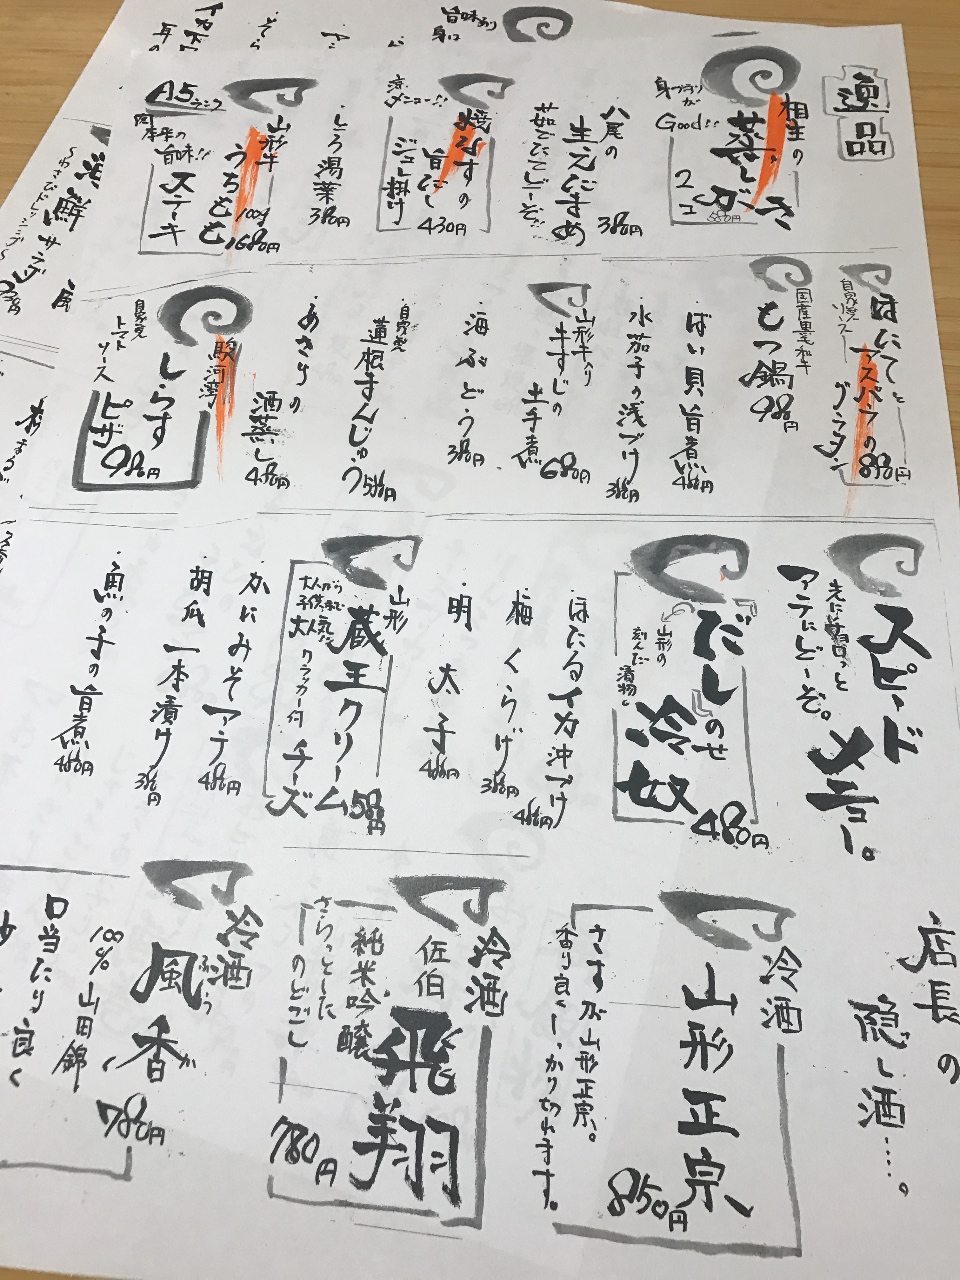 逸品
相生の
蒸しがき
2コ
580円
身プリプリが
Good!!
八尾の
生えだまめ
茹でたてどーぞ!!
380円
焼なすの
旨だし
ジュレ掛け
430円
涼メニュー!!
・しろ湯葉
380円
山形牛
うちもも
100g
ステーキ
1680円
A5ランク
肉本来の
旨味!!
ほたてと
アスパラの
グラタン
890円
自家製
ソース
もつ鍋
980円
国産黒毛和牛
・ばい貝旨煮
480円
・水茄子の浅づけ
380円
山形牛入り
牛すじの
土手煮
680円
・海ぶどう
380円
自家製
・蓮根まんじゅう
580円
・あさりの
酒蒸し
480円
駿河湾
しらす
ピザ
980円
自家製
トマト
ソース
海鮮サラダ
〜わさびドレッシング〜
スピード
メニュー。
アテにどーぞ。
だしのせ
冷奴
480円
山形の
刻んだ漬物。
・ほたるイカ沖づけ
480円
・梅くらげ
380円
・明太子
480円
山形
蔵王クリーム
チーズ
580円
大人から
子供まで
大人気!!
クラッカー付
・かにみそアテ
480円
・胡瓜一本漬け
380円
・魚の子の旨煮
480円
店長の
隠し酒……。
冷酒
山形正宗
850円
さすが山形正宗。
香り良くしっかり切れます。
冷酒
佐伯
飛翔
純米吟醸
780円
さらっとした
のどごし
冷酒
風香
ふうか
780円
100%山田錦
口当たり良く